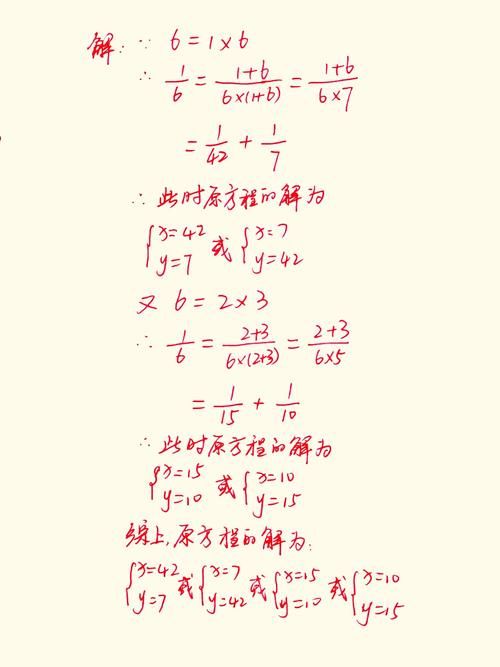 解: ∵ 6=1×6
∴ 1/6 = (1+6)/(6×(1+6)) = (1+6)/(6×7)
= 1/42 + 1/7
∴ 此时原方程的解为
{x=42 y=7 或 {x=7 y=42
又 6=2×3
∴ 1/6 = (2+3)/(6×(2+3)) = (2+3)/(6×5)
= 1/15 + 1/10
∴ 此时原方程的解为
{x=15 y=10 或 {x=10 y=15
综上,原方程的解为:
{x=42 y=7 或 {x=7 y=42 或 {x=15 y=10 或 {x=10 y=15